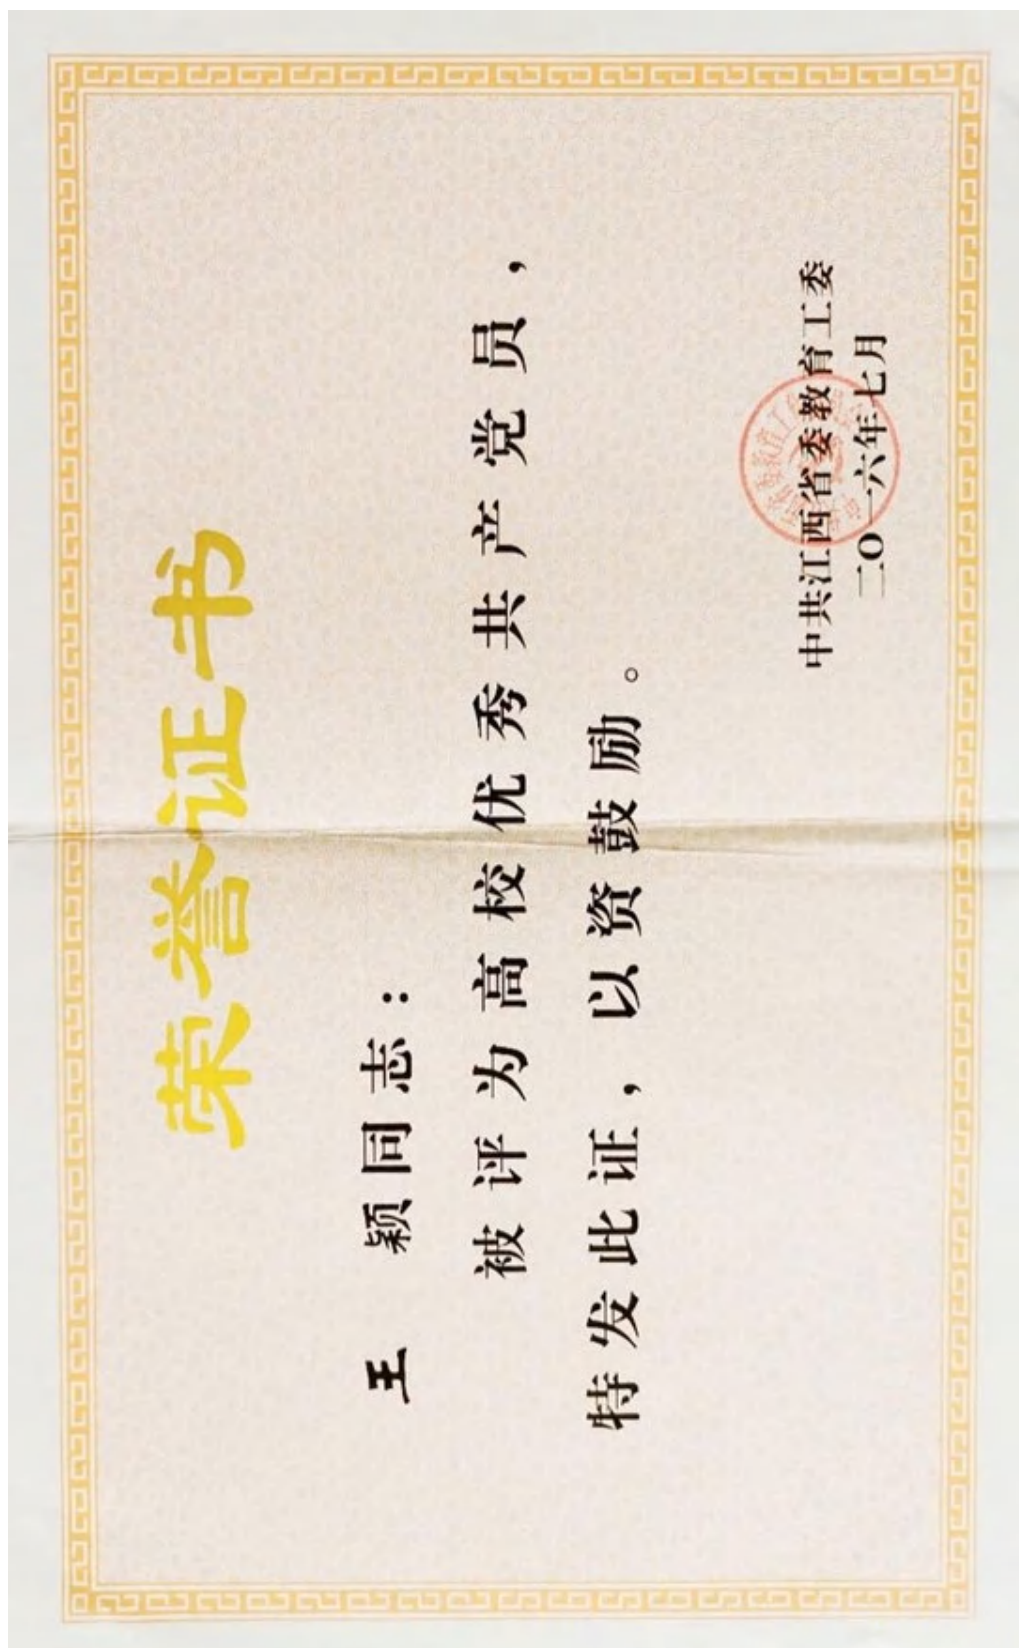 荣誉证书
王 颖同志：
被评为高校优秀共产党员，
特发此证，以资鼓励。
中共江西省委教育工委
二〇一六年七月